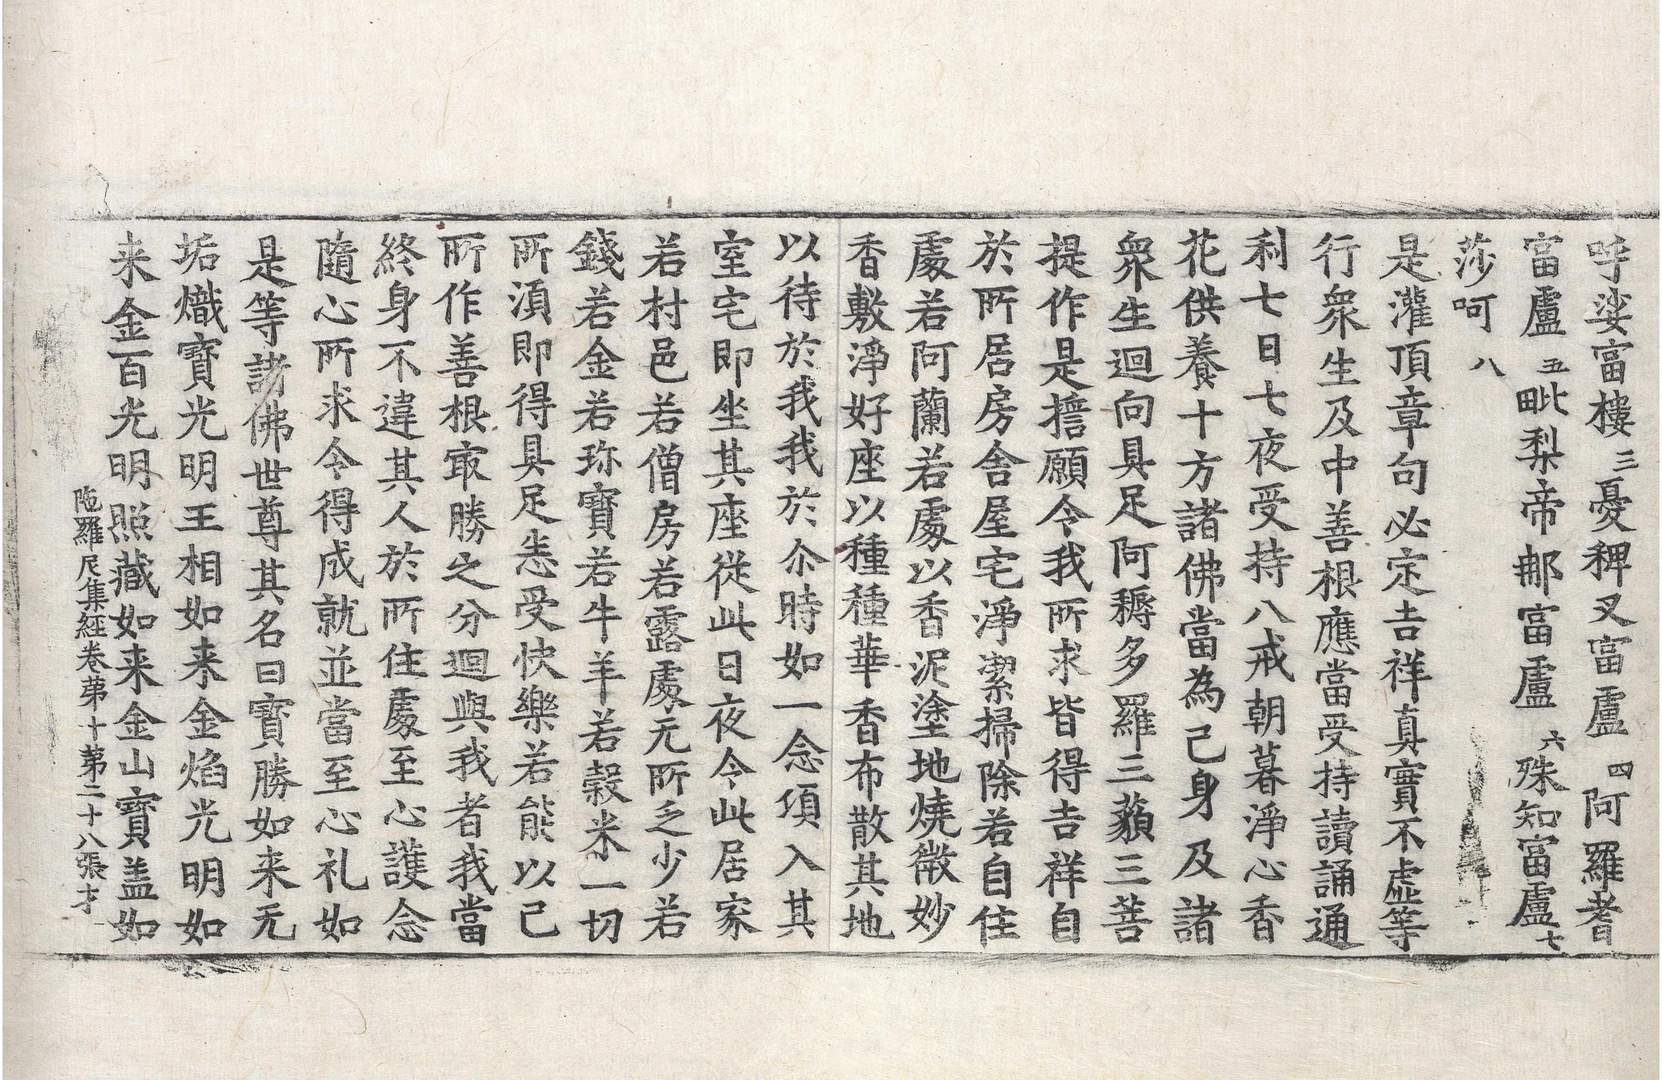 呼娑富樓三憂稗叉富盧四阿羅耆
富盧五毗梨帝那富盧六殊知富盧七
莎呵八
是灌頂章句必定吉祥真實不虛等
行眾生及中善根應當受持讀誦通
利七日七夜受持八戒朝暮淨心香
花供養十方諸佛當為己身及諸
眾生迴向具足阿耨多羅三藐三菩
提作是擔願令我所求皆得吉祥自
於所居房舍屋宅淨潔掃除若自住
處若阿蘭若處以香泥塗地燒微妙
香敷淨好座以種種華香布散其地
以待於我我於尒時如一念頃入其
室宅即坐其座從此日夜令此居家
若村邑若僧房若露處无所乏少若
錢若金若珎寶若牛羊若穀米一切
所湏即得具足悉受快樂若能以己
所作善根㝡勝之分迴與我者我當
終身不違其人於所住處至心護念
隨心所求令得成就並當至心礼如
是等諸佛世尊其名曰寶勝如来无
垢熾寶光明王相如来金焰光明如
来金百光明照藏如来金山寶盖如
陁羅尼集經卷苐十苐二十八張才